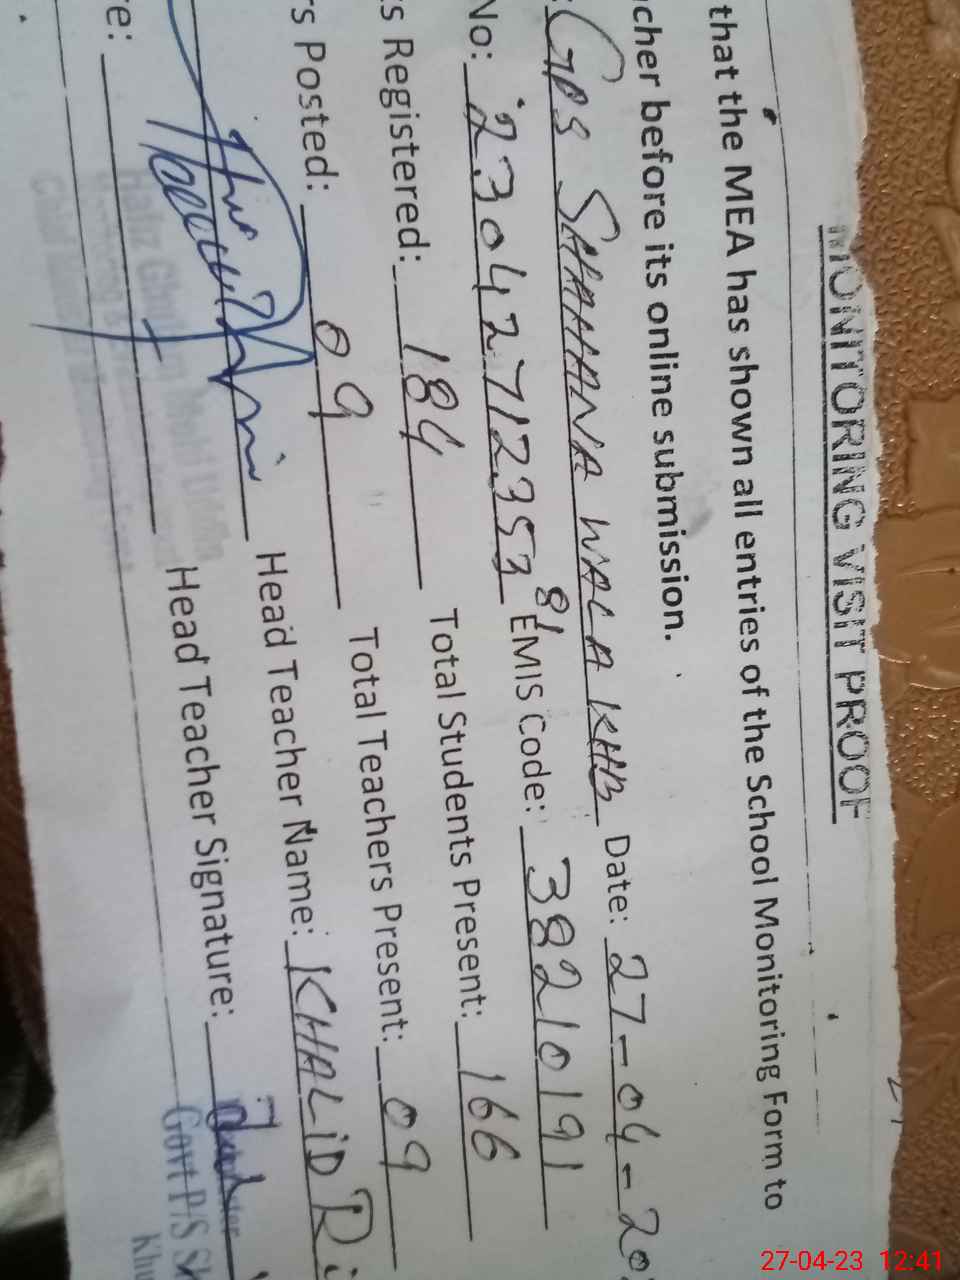 MONITORING VISIT PROOF
that the MEA has shown all entries of the School Monitoring Form to
cher before its online submission.
: GPS SHAHANA WALA KHB Date: 27-04-20
No: 23042712353 81 EMIS Code: 38210191
s Registered: 184 Total Students Present: 166
rs Posted: 09 Total Teachers Present: 09
Head Teacher Name: KHALID
re: Head Teacher Signature:
Hafiz Ghulam Mohi Uddin
Govt P/S
27-04-23 12:41